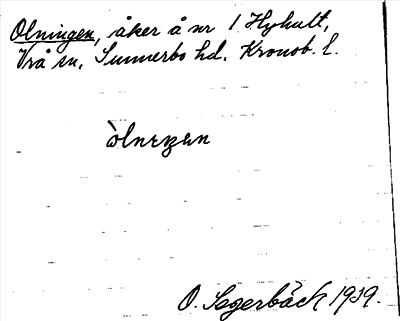 Olningen, åker å nr 1 Hyhult,
Vrå sn, Sunnerbo hd. Kronob. l.
òlnɩŋen
O. Segerbäck 1939.